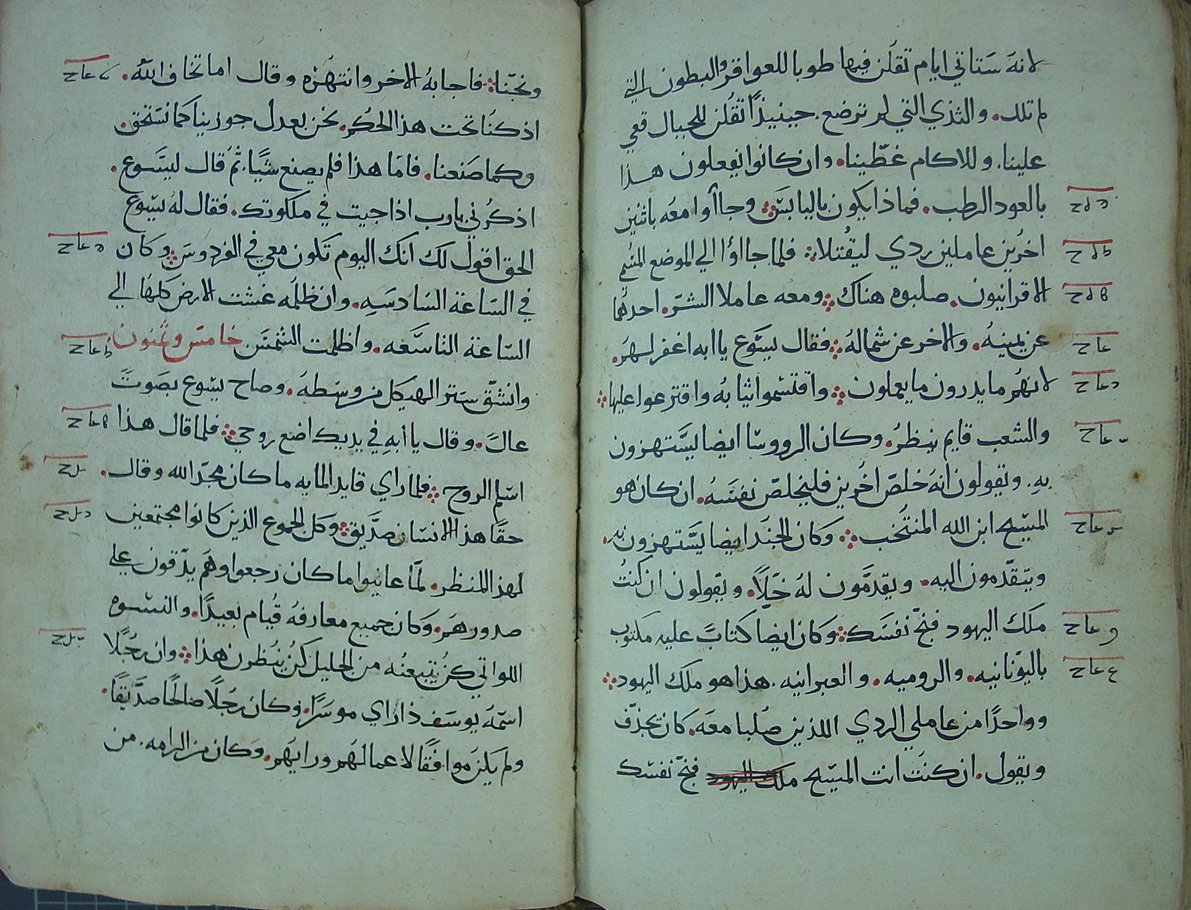 لانه ستاتي ايام تقلن فيها طوبا للعواقر والبطون التي
لم تلد. والثدي التي لم ترضع. حينيذًا تقلن للجبال قعي
علينا. وللاكام غطينا. وان كانوا يفعلون هذا
بالعود الرطب. فماذا يكون باليابس وجاآوا معه باثنين
اخرين عاملين ردي ليقتلا. فلما جااؤا الي الموضع المسمي
الاقرانيون. صلبوه هناك ومعه عاملا الشر. احدهما
عن يمينه. والاخر عن شماله فقال يسوع يا ابه اغفر لهم.
لانهم ما يدرون ما يعملون واقتسموا ثيابه واقترعوا عليها
والشعب قايم ينظر. وكان الرووسا ايضا يستهزون
به. وتقولون انه خلص اخرين فليخلص نفسه. ان كان هو
المسيح ابن الله المنتخب وكان الجند ايضا يستهزون به.
ويتقدمون اليه. ويقدمون له خلًا. ويقولون ان كنت
ملك اليهود فنج نفسك وكان ايضا كتابً عليه مكتوب
باليونانيه. والروميه. والعبرانيه. هذا هو ملك اليهود
وواحدًا من عاملي الردي اللذين صلبا معه. كان يجدف
ويقول. ان كنت انت المسيح ملك اليهود فنج نفسك
ونجنا فاجابه الاخر وانتهره وقال اما تخاف الله.
اذ كنا تحت هذا الحكم. نحن بعدل جوزينا كما نستحق.
وكما صنعنا. فاما هذا فلم يصنع شيًا. ثم قال ليسوع.
اذكرني يارب اذا جيت في ملكوتك. فقال له يسوع
الحق اقول لك انك اليوم تكون معي في الفردوس وكان
في الساعة السادسه. وان ظلمه غشت الارض كلها الي
الساعة التاسعه. واظلمت الشمس خامس وثمنون
وانشق ستر الهيكل من وسطه. وصاح يسوع بصوت
عالٍ. وقال يا ابه في يديك اضع روحي فلما قال هذا
اسلم الروح فلما راي قايد المايه ما كان مجد الله وقال.
حقا هذا الانسان صديق وكل الجموع الذين كانوا مجتمعين
لهذا المنظر. لما عاينوا ما كان رجعوا وهم يدقون علي
صدورهم. وكان جميع معارفه قيام بعيدًا. والنسوه
اللواتي كن يتبعنه من الجليل كن ينظرن هذا وان رجلًا
اسمه يوسف ذا راي موسرًا. وكان رجلًا صالحًا صديقًا.
ولم يكن موافقًا لاعمالهم ورايهم. وكان من الرامه. من